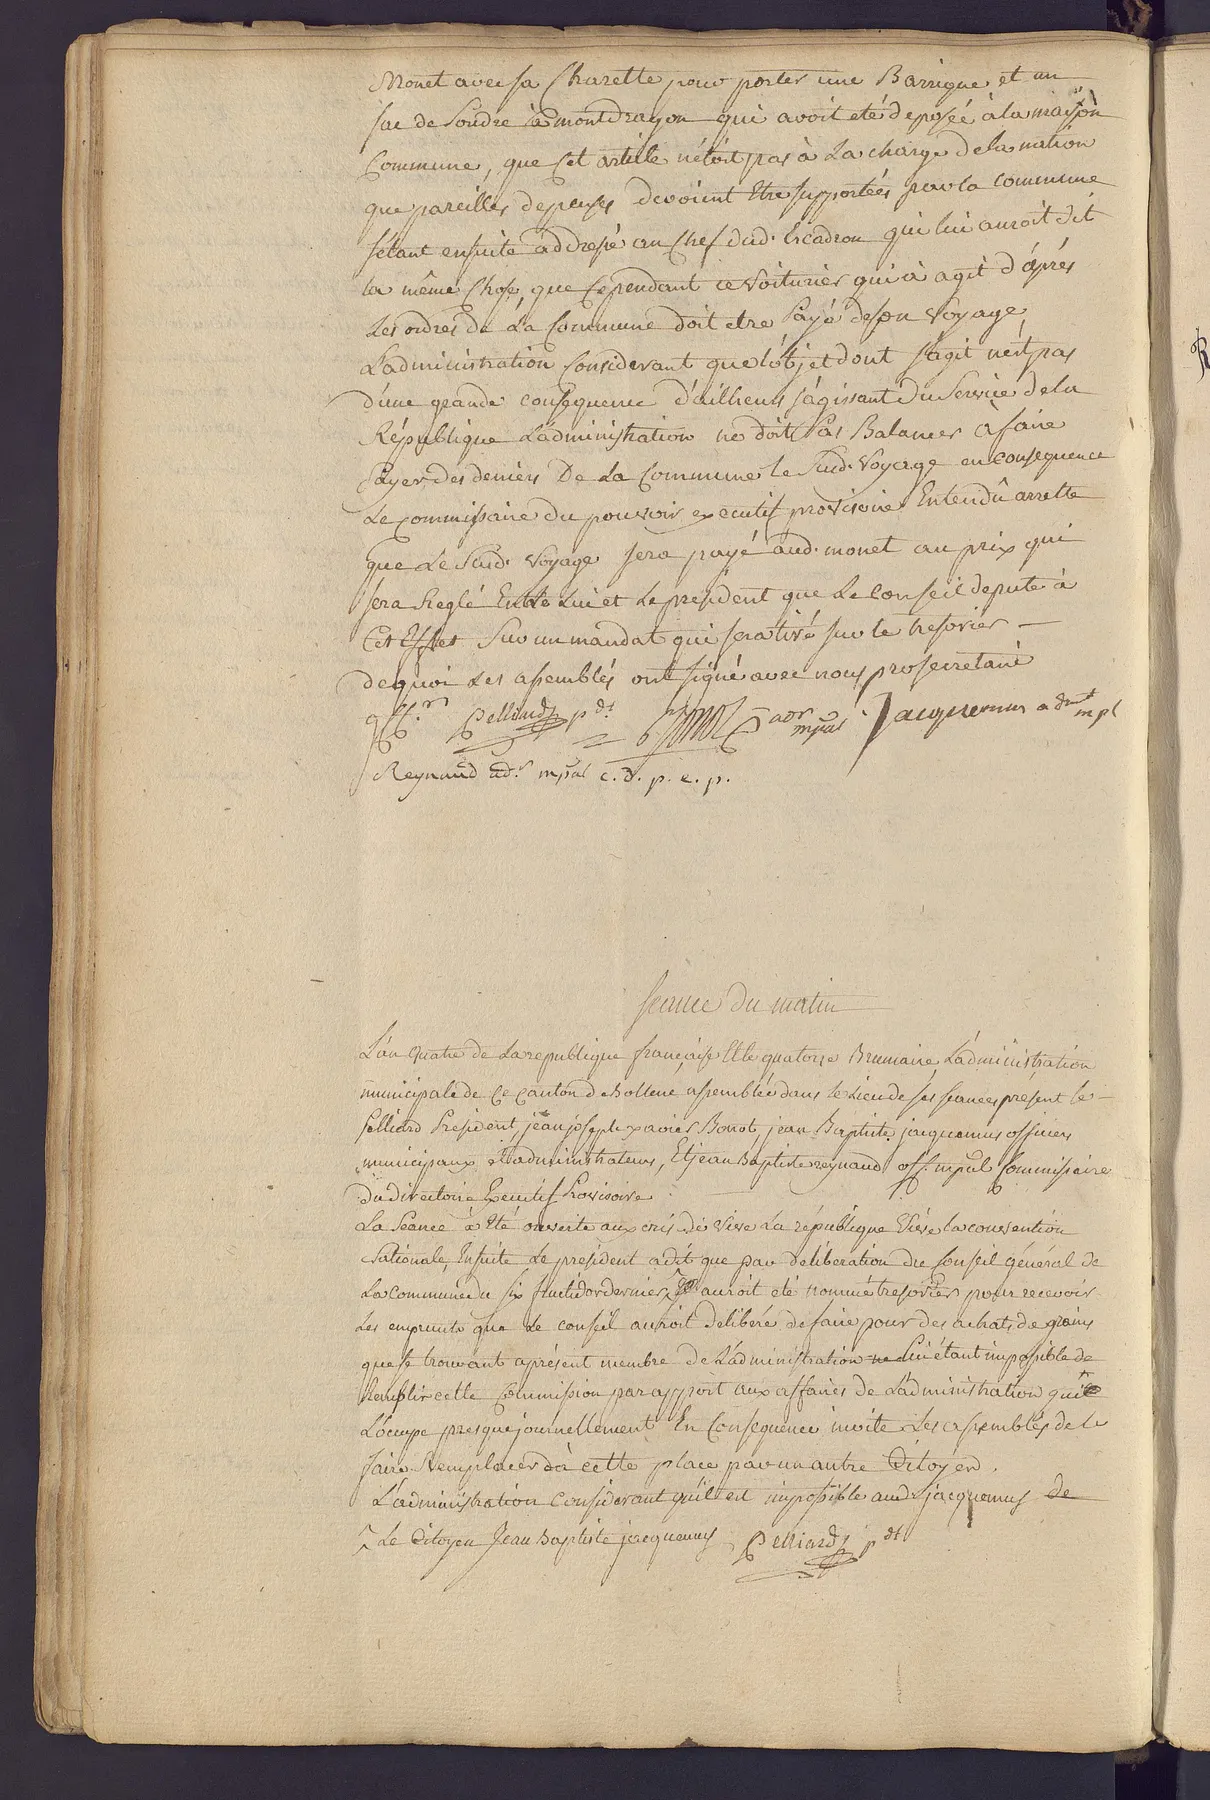 Monet avec sa Charette pour porter une Barrique et un
sac de Poudre à montdragon qui avoit eté deposée à la maison
Commune, que Cet article n'étoit pas à La charge de la nation
que pareilles depenses devoient Etre supportées par la commune
s'étant ensuite addressé au Chef dud. Escadron qui lui auroit dit
la même Chose, que Cependant ce voiturier qui à agit d'après
Les ordres de La Commune doit etre Payé de son Voyage,
L'administration Considerant que l'objet dont s'agit n'est pas
d'une grande consequence d'ailheurs s'agissant Du Service de la
République L'administration ne doit Pas Balancer à faire
Payer des deniers De La Commune le Susd. Voyage en consequence
Le commissaire du pouvoir executif provisoire Entendû arrette
que Le Susd. Voyage sera payé aud. monet au prix qui
sera Reglé Entre Lui et Le président que Le Conseil depute à
Cet Effet Sur un mandat qui sera tiré sur le tresorier —
de quoi Les assemblés ont signé avec nous prosecretaire
Pelliard pdt Bonot adr mpal Jacquemus admt mpl
Reynaud adr mpal c. d. p. e. p.
seance du matin
L'an quatre de La republique française Et le quatorse Brumaire, L'administration
municipale de Ce Canton de Bollene assemblée dans le Lieu de ses seances présent le —
Pelliard Président, jean joseph xavier Bonot, jean Baptiste jacquemus officiers
municipaux et administrateurs, Et jean Baptiste reynaud off. mpal Commissaire
du directoire Executif Provisoire
La Seance à Eté ouverte aux cris de vive La république Vive la convention
Nationale, Ensuite Le president a dit que par deliberation du Conseil général de
La Commune du six fructidor dernier, ^ auroit eté nommé tresorier pour recevoir
Les emprunts que Le conseil auroit deliberé de faire pour des achats de grains
que se trouvant apresent membre de L'administration Lui étant impossible de
Remplir cette Commission par apport aux affaires de L'administration qui
L'occupe presque journellement En Consequence invite Les assemblés de le
faire Remplacer à cette place par un autre Citoyen.
L'administration considerant qu'il est impossible aud. jacquemus de
^ Le Citoyen Jean Baptiste jacquemus Pelliard pdt